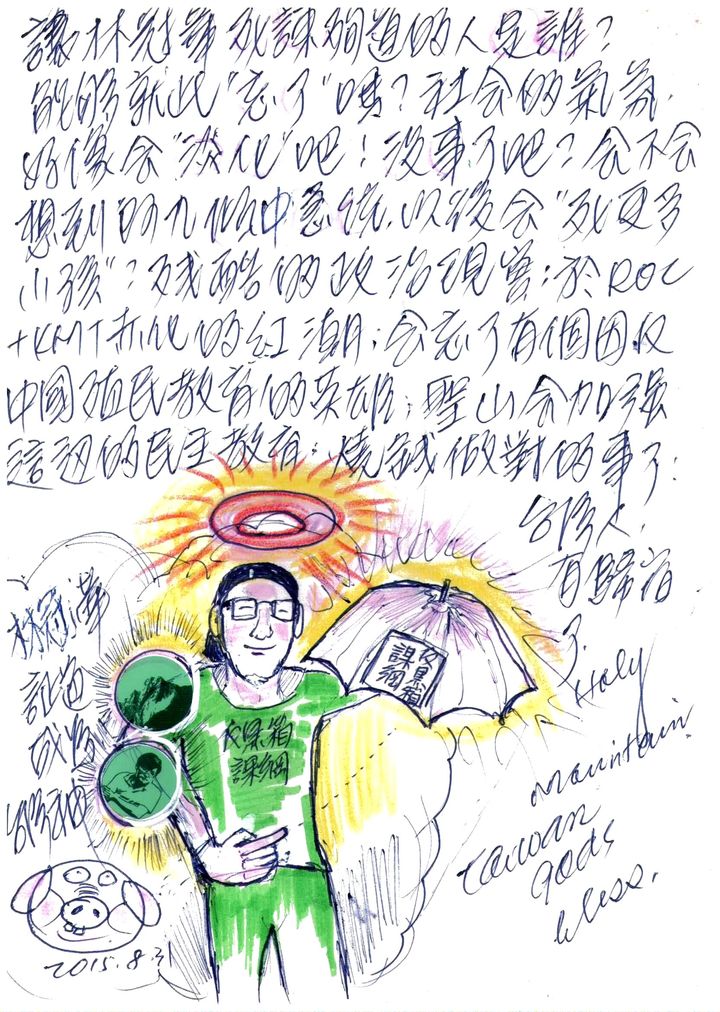 讓林冠華死諫殉道的人是誰？
能够就此"忘了"嗎？社会的氣氛，
好像会"淡化"吧！沒事了吧？会不会
想到，以後会"死更多
小孩"？残酷的政治現實；於ROC
+KMT赤化的紅潮；会忘了有個因反
中國殖民教育的英雄；聖山会加强
這週的民主教育；燒錢做對的事了；
台湾人，
有歸宿
了。
Holy
Mountain.
Taiwan
gods
bless.
林冠華
証道
成為
台湾神
反黑箱
課綱
反黑箱
課綱
2015.8.31